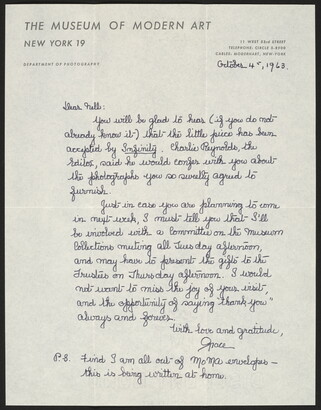 THE MUSEUM OF MODERN ART
NEW YORK 19
11 WEST 53rd STREET
TELEPHONE: CIRCLE 5-8900
CABLES: MODERNART, NEW-YORK
DEPARTMENT OF PHOTOGRAPHY
October 4, 1963.
Dear Nell:
You will be glad to hear (if you do not
already know it) that the little piece has been
accepted by Infinity. Charlie Reynolds, the
Editor, said he would confer with you about
the photographs you so sweetly agreed to
furnish.
Just in case you are planning to come
in next week, I must tell you that I'll
be involved with a Committee on the Museum
Collections meeting all Tuesday afternoon,
and may have to present the gifts to the
Trustees on Thursday afternoon. I would
not want to miss the joy of your visit,
and the opportunity of saying "thank you"
always and forever.
With love and gratitude,
Grace
P.S. Find I am all out of MoMA envelopes —
this is being written at home.